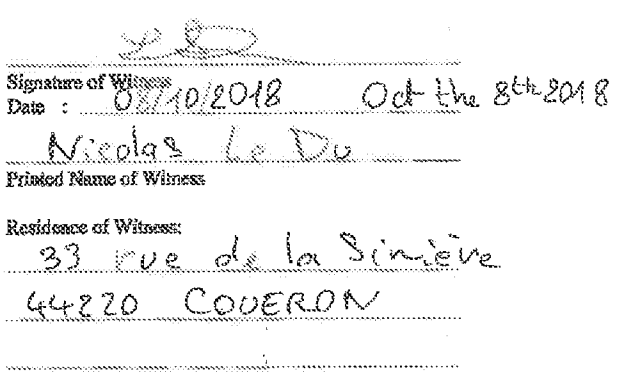 Signature of Witness
Date : 07/10/2018 Oct the 8th 2018
Nicolas Le Du
Printed Name of Witness
Residence of Witness:
33 rue de la Sinière
44220 COUERON